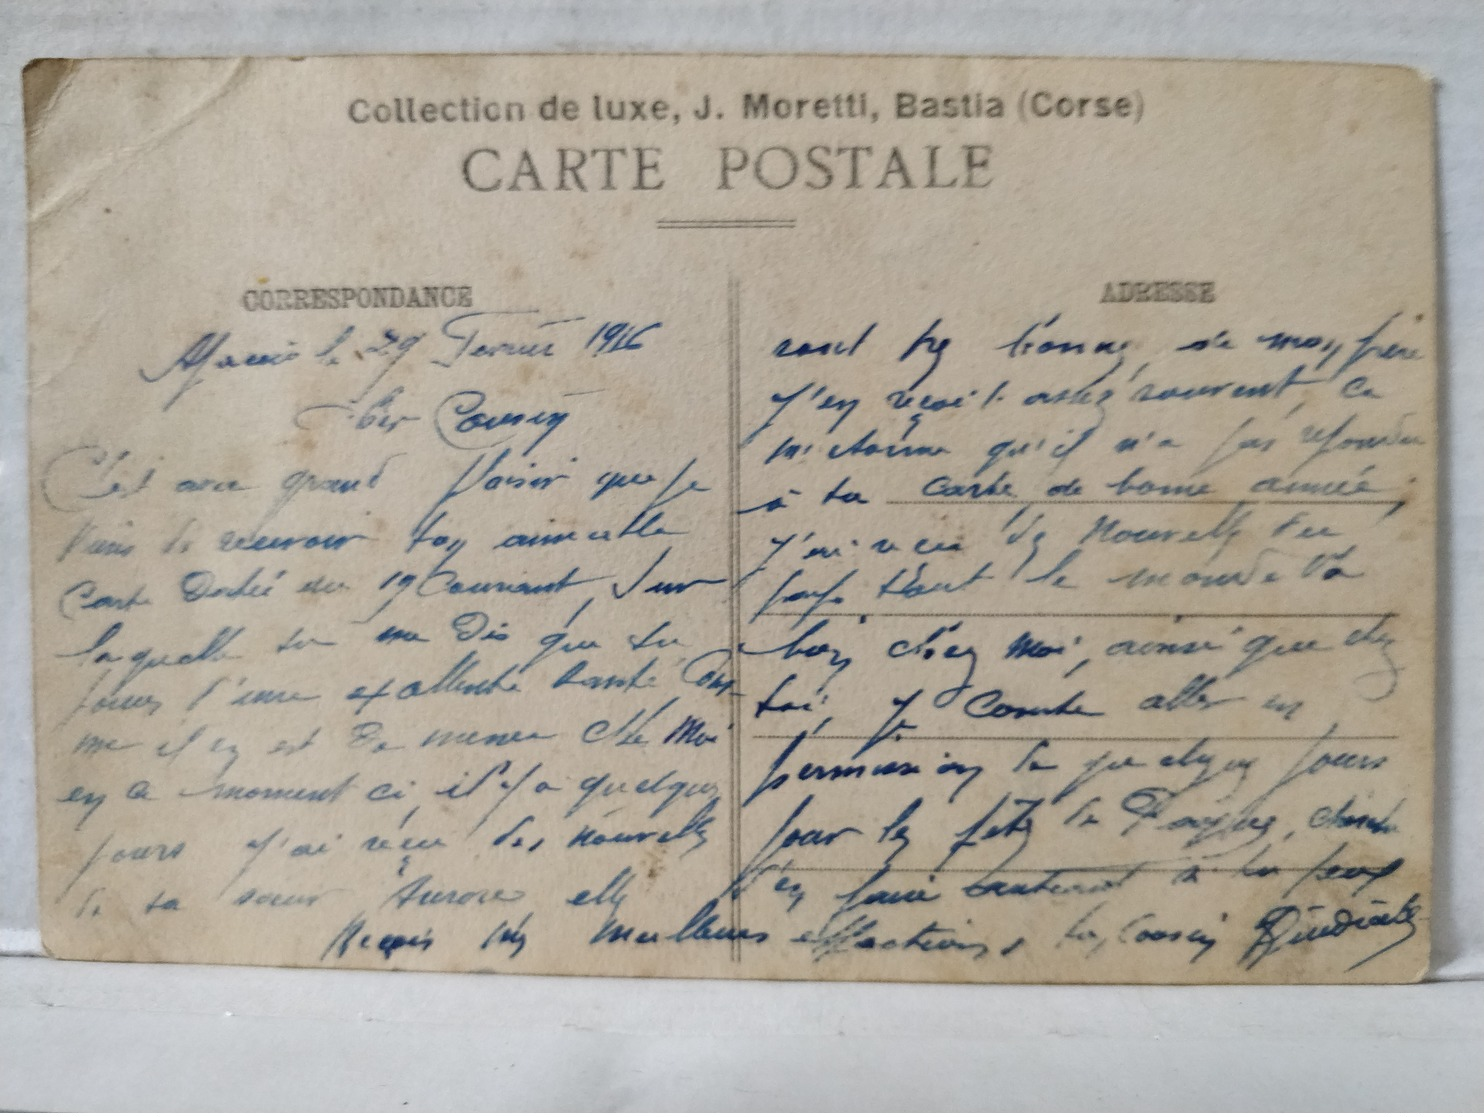 Collection de luxe, J. Moretti, Bastia (Corse)
CARTE POSTALE
CORRESPONDANCE
Ajaccio le 29 Fevrier 1916
Cher Cousin
C'est avec grand plaisir que je
viens de recevoir ton aimable
Carte Datée du 19 Courant, sur
laquelle tu me Dis que tu
jouis d'une exellente Santé Com-
me il en est De meme Ché Moi
en ce moment ci, il y a quelques
jours j'ai réçu des nouvelles
de ta sœur Aurore elles
ADRESSE
sont très bonnes, de mon frère
j'en reçoit assez souvent, ca
m'etonne qu'il n'a pas repondu
à ta carte de bonne année,
j'ai reçu des Nouvelles du
pays tout le monde va
bien chez Moi, ainsi que chez
toi, je compte aller en
permission de quelques jours
pour les fetes de Paques,
d'en faire autant si tu peux
Reçois mes meilleures affections, ton Cousin